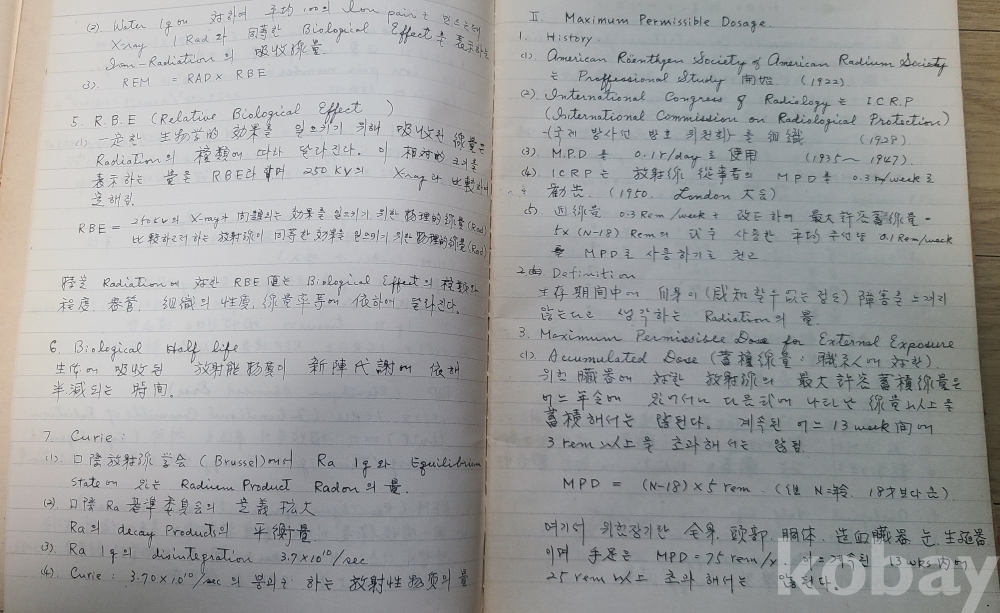 (2). Water 1g에 対하여 平均 100의 Ion pair는 만드는데
X-ray 1 Rad와 同等한 Biological Effect를 表示하는
Ion-Radiation의 吸收線量.
(3). REM = RAD × RBE
5. R.B.E (Relative Biological Effect )
(1) 一定한 生物学的 効果를 일으키기 위해 吸收한 線量은
Radiation의 種類에 따라 달라진다. 이 相対的 크기를
表示하는 量은 RBE라 하며 250 KV의 X-ray와 比較하여
定해짐
RBE = 250KV의 X-ray가 同類되는 効果를 일으키기 위한 物理的線量(Rad)
比較하고저하는 放射線이 同等한 効果를 일으키기 위한 物理的線量(Rad)
特定 Radiation에 対한 RBE 値는 Biological Effect의 種類와
程度, 器官, 組織의 性质, 線量率等에 依하여 달라진다.
6. Biological Half life
生体에 吸收된 放射能物質이 新陳代謝에 依해
半減되는 時間.
7. Curie :
(1). 口際放射線学会 (Brussel)에서 Ra 1g와 Equilibrium
state에 있는 Radium Product Radon의 量.
(2). 口際 Ra 基準委員会의 定義 拡大
Ra의 decay Products의 平衡量
(3). Ra 1g의 disintegration 3.7×10¹⁰/sec
(4). Curie : 3.70×10¹⁰/sec의 붕괴는 하는 放射性物质의 量
II. Maximum Permissible Dosage.
1. History.
(1). American Röenthgen Society of American Radium Society
는 Proffessional Study 開始 (1922).
(2). International Congress of Radiology는 I C R.P
(International Commission on Radiological Protection)
-(국제 방사선 방호 위원회)를 組織 (1928)
(3). M.P.D를 0.1r/day로 使用 (1935~ 1947).
(4). ICRP는 放射線 従事者의 MPD를 0.3r/week로
勧告. (1950. London 大会)
(5). 週線量 0.3 Rem/week는 改正하여 最大許容蓄線量.
5x (N-18) Rem의 式을 사용한 平均 주선량 0.1 Rem/week
를 MPD로 사용하기로 권고
2. Definition
生存期間中에 自身이 (感知할수없는 정도) 障害를 느끼지
않는다고 생각하는 Radiation의 量
3. Maximum Permissible Dose for External Exposure
(1). Accumulated Dose (蓄積線量: 職業人에 対한).
위험 臓器에 対한 放射線의 最大許容蓄積線量은
어느 年令에 있어서나 다음式에 나타난 線量以上을
蓄積해서는 않된다. 계속된 어느 13 week 間에
3 rem 以上을 초과해서는 않됨
MPD = (N-18) × 5 rem. (但 N=年令, 18才보다 큼).
여기서 위험장기란 全身, 頭部, 胴体, 造血臓器, 눈, 生殖器
이며 手足는 MPD = 75 rem/y 13 wks 內에
25 rem 以上 초과 해서는 않된다.
kobay